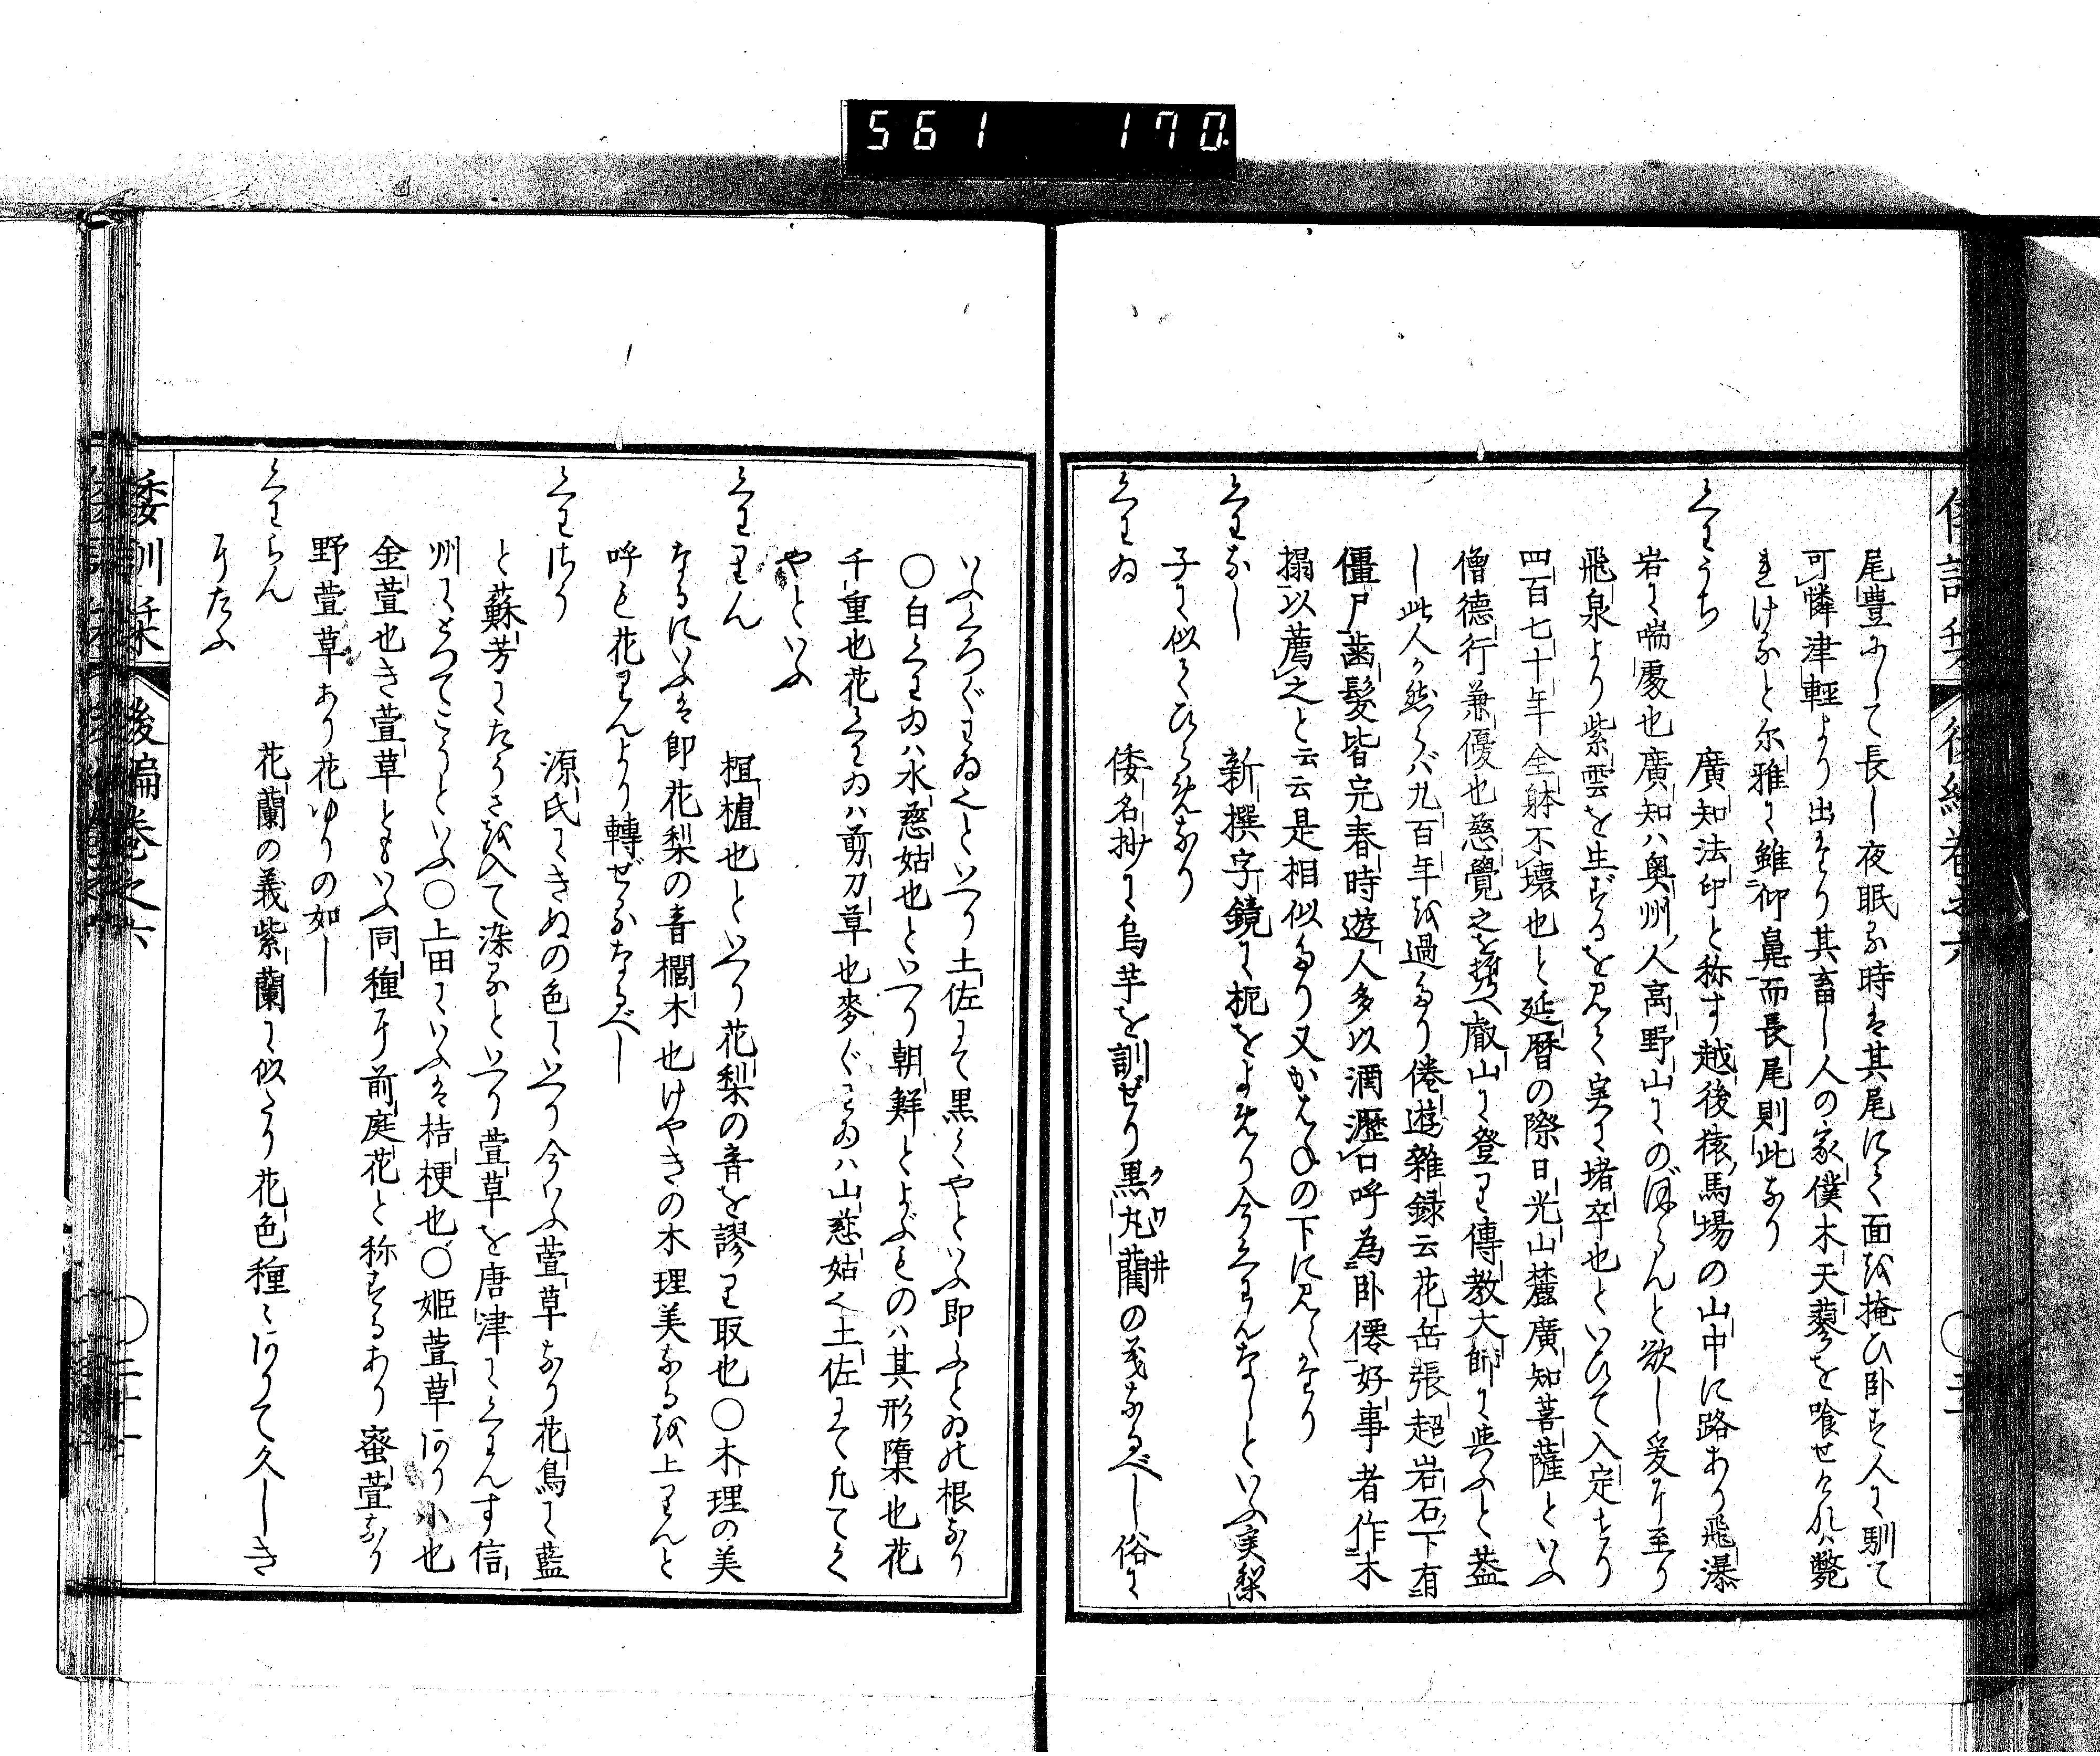 561 170
尾豊にして長し夜眠る時は其尾にて面を掩ひ卧す人に馴て
可憐津輕より出たり其畜し人の家僕木天蓼を喰せけれハ斃
れけるとぞ尔雅に蜼仰鼻而長尾則此なり
くわうち 廣知法印と称す越後猿馬場の山中に路あり飛瀑
岩に喘處也廣知ハ奥州人高野山にのぼらんと欲し爰に至り
飛泉より紫雲を生ずるを見て実に堵卒也といひて入定せり
四百七十年全躰不壞也と延暦の際日光山麓廣知菩薩といふ
僧德行兼優也慈覺之を携へ叡山に登りて傳教大師に與ふと蓋
し此人か然らバ九百年を過たり倦遊雑録云花岳張超岩石下有
僵尸齒髪皆完春時遊人多以酒瀝口呼為卧僊好事者作木
搨以薦之と云云是相似たり又かはねの下に見えたり
くわなし 新撰字鏡に杔をよめり今くわんなしといふ実梨
子に似てひらめなり
くわゐ 倭名抄に烏芋を訓ぜり黒丸藺の義なるべし俗に
クワ井
いふくろぐわゐ也といへり土佐にて黒くやといふ即ふとゐの根なり
○白くわゐハ水慈姑也といへり朝鮮とよぶものハ其形隋橐也花
千重也花くわゐハ剪刀草也麥ぐわゐハ山慈姑也土佐にて凡てく
やといふ
くわりん 榠樝也といへり花梨の音を謬り取也○木理の美
なるにいふは即花梨の音櫚木也けやきの木理美なるを上りんと
呼も花りんより轉ぜるなるべし
くわぼり 源氏にきぬの色にいへり今いふ萱草なり花鳥に藍
と蘇芳にたうさを入て染るといへり萱草を唐津にくわんす信
州にとつてこうといふ○上田にいふは桔梗也○姫萱草あり小也
金萱也き萱草ともいふ同種に前庭花と称するあり蜜萱なり
野萱草あり花ゆりの如し
くわらん 花蘭の義紫蘭に似たり花色種々ありて久しき
にたふ
倭訓栞 後編巻之六 ○二十一